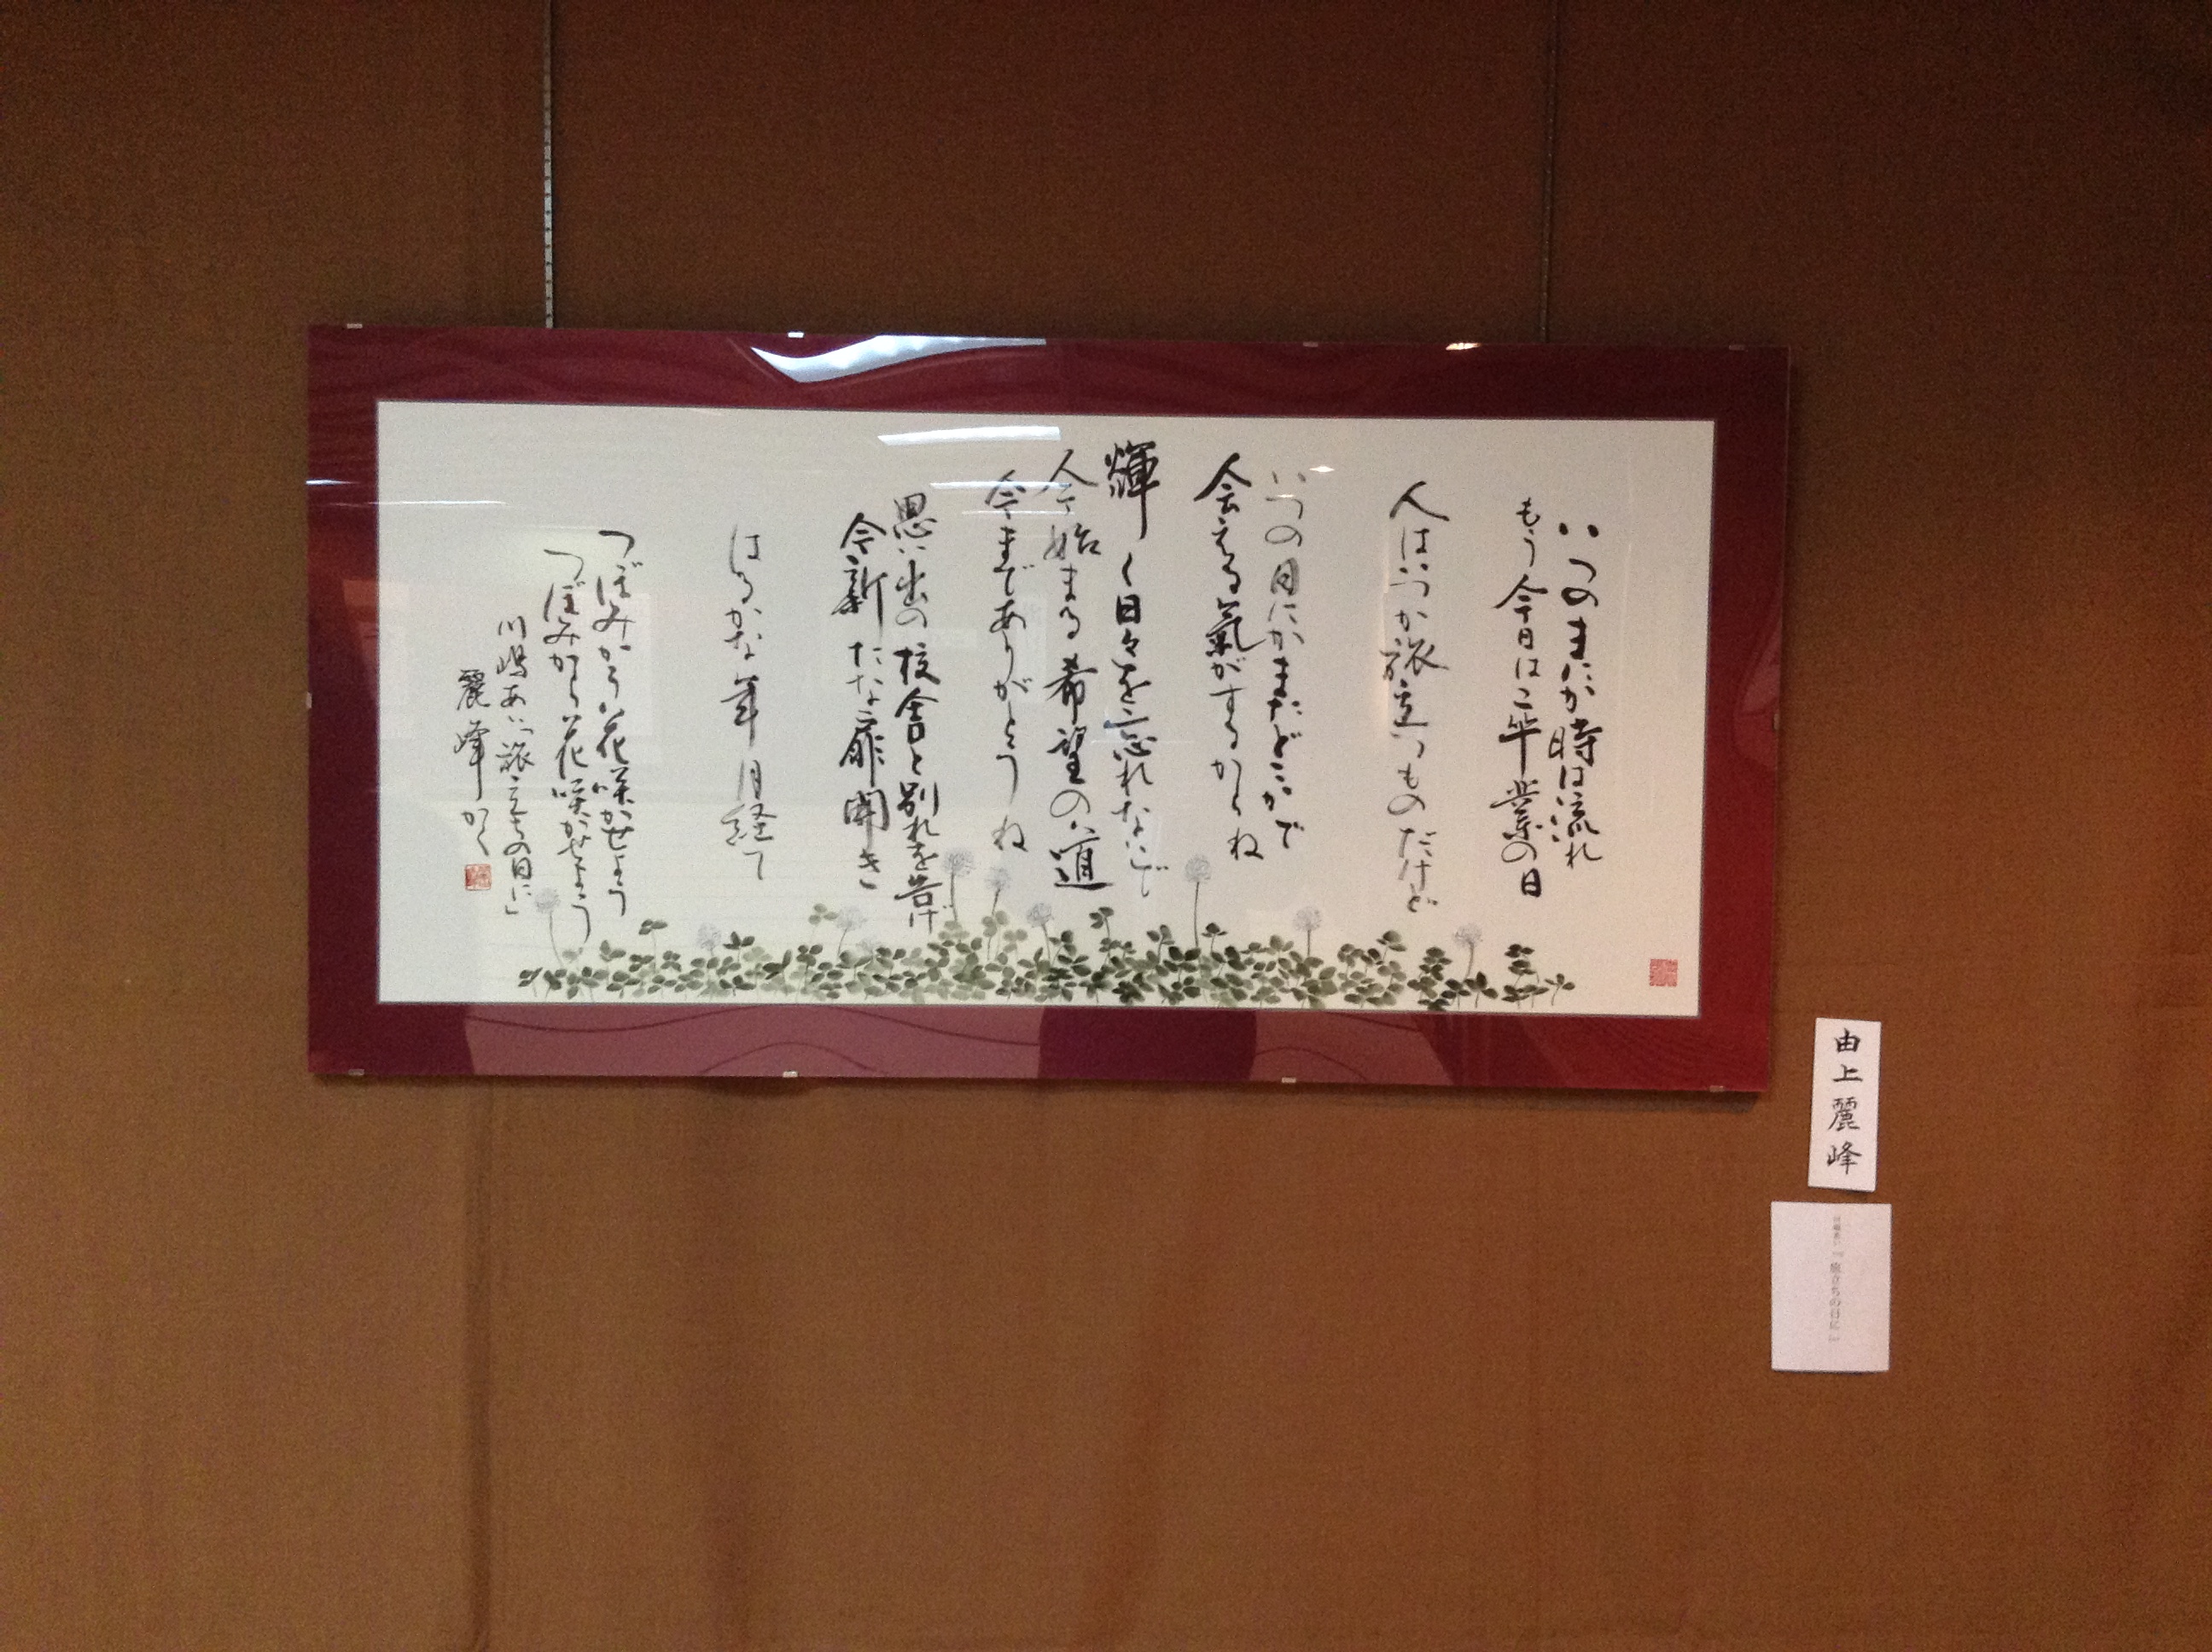 いつのまにか時は流れ
もう今日は卒業の日
人はいつか旅立つものだけど
いつの日にかまたどこかで
会える氣がするからね
輝く日々を忘れないで
今始まる希望の道
今までありがとうね
思い出の校舎と別れを告げ
今新たな扉開き
はるかな年月経て
つぼみから花咲かせよう
つぼみから花咲かせよう
川嶋あい「旅立ちの日に」
麗峰かく
由上麗峰
川嶋あい『旅立ちの日に』